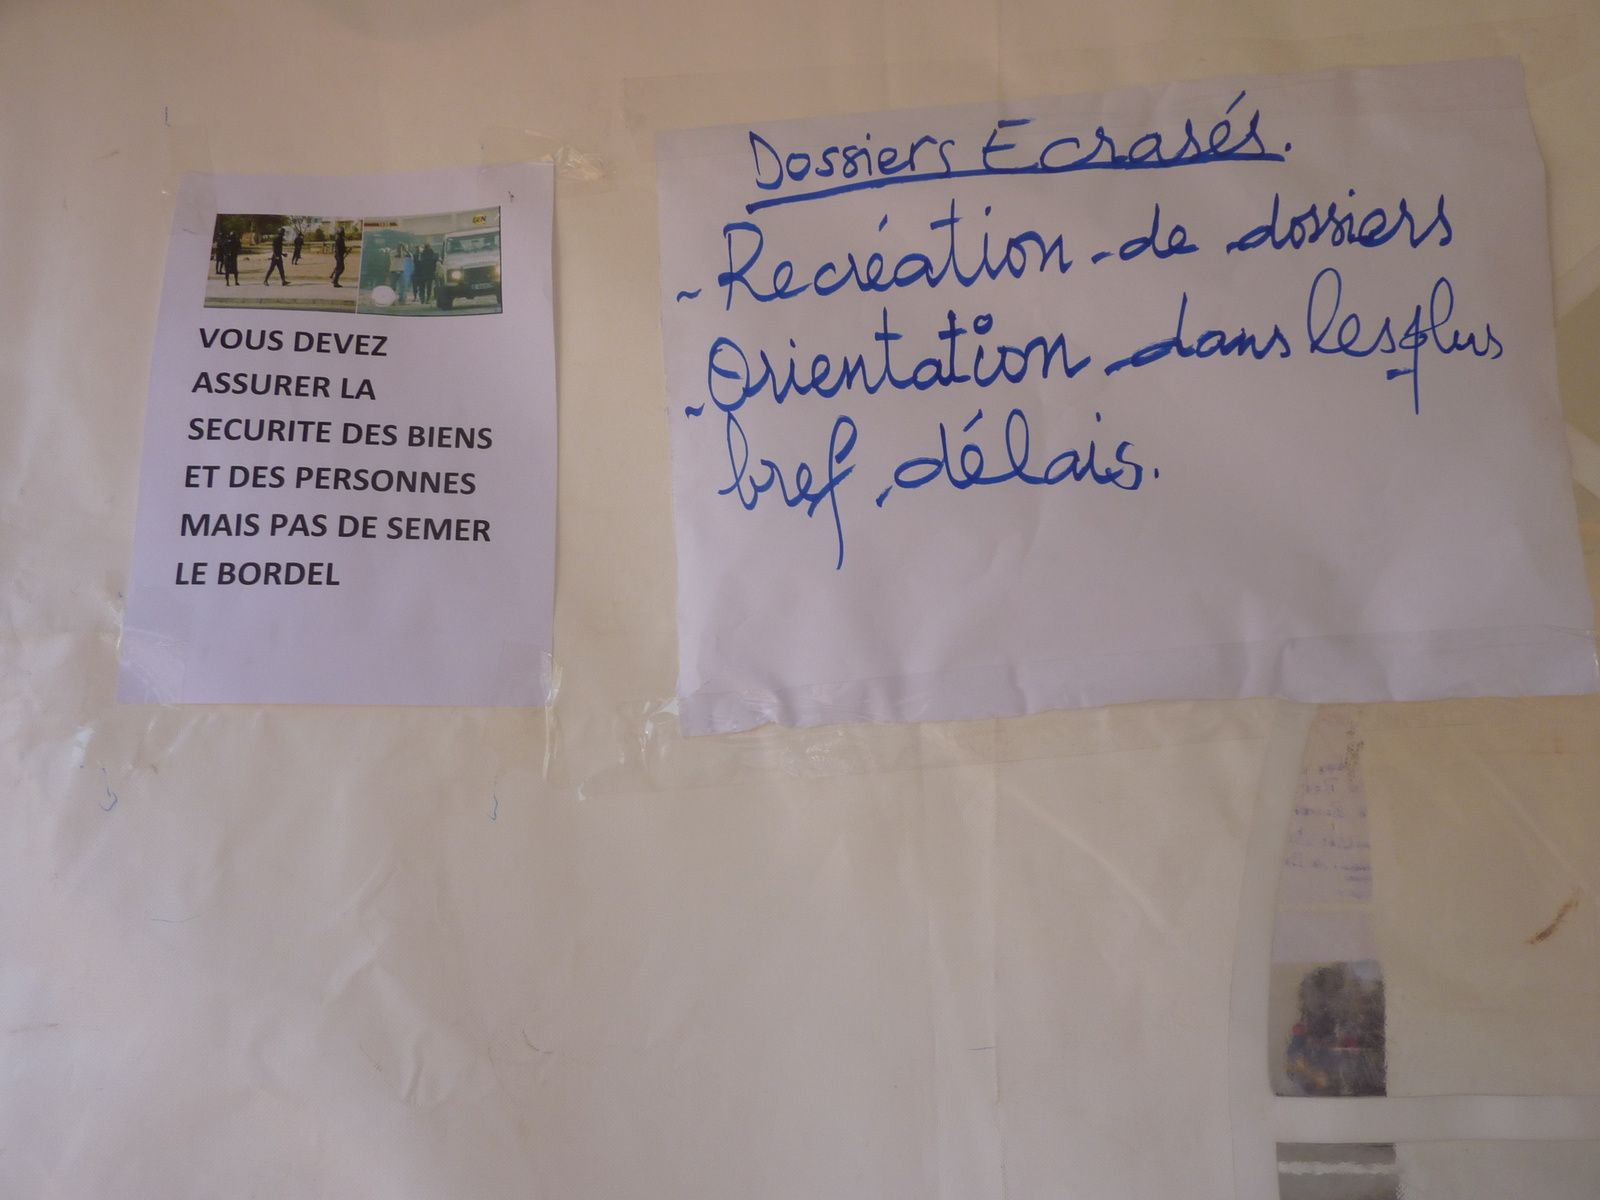 VOUS DEVEZ
ASSURER LA
SECURITE DES BIENS
ET DES PERSONNES
MAIS PAS DE SEMER
LE BORDEL
Dossiers Ecrasés.
- Recréation de dossiers
- Orientation dans les plus
bref délais.